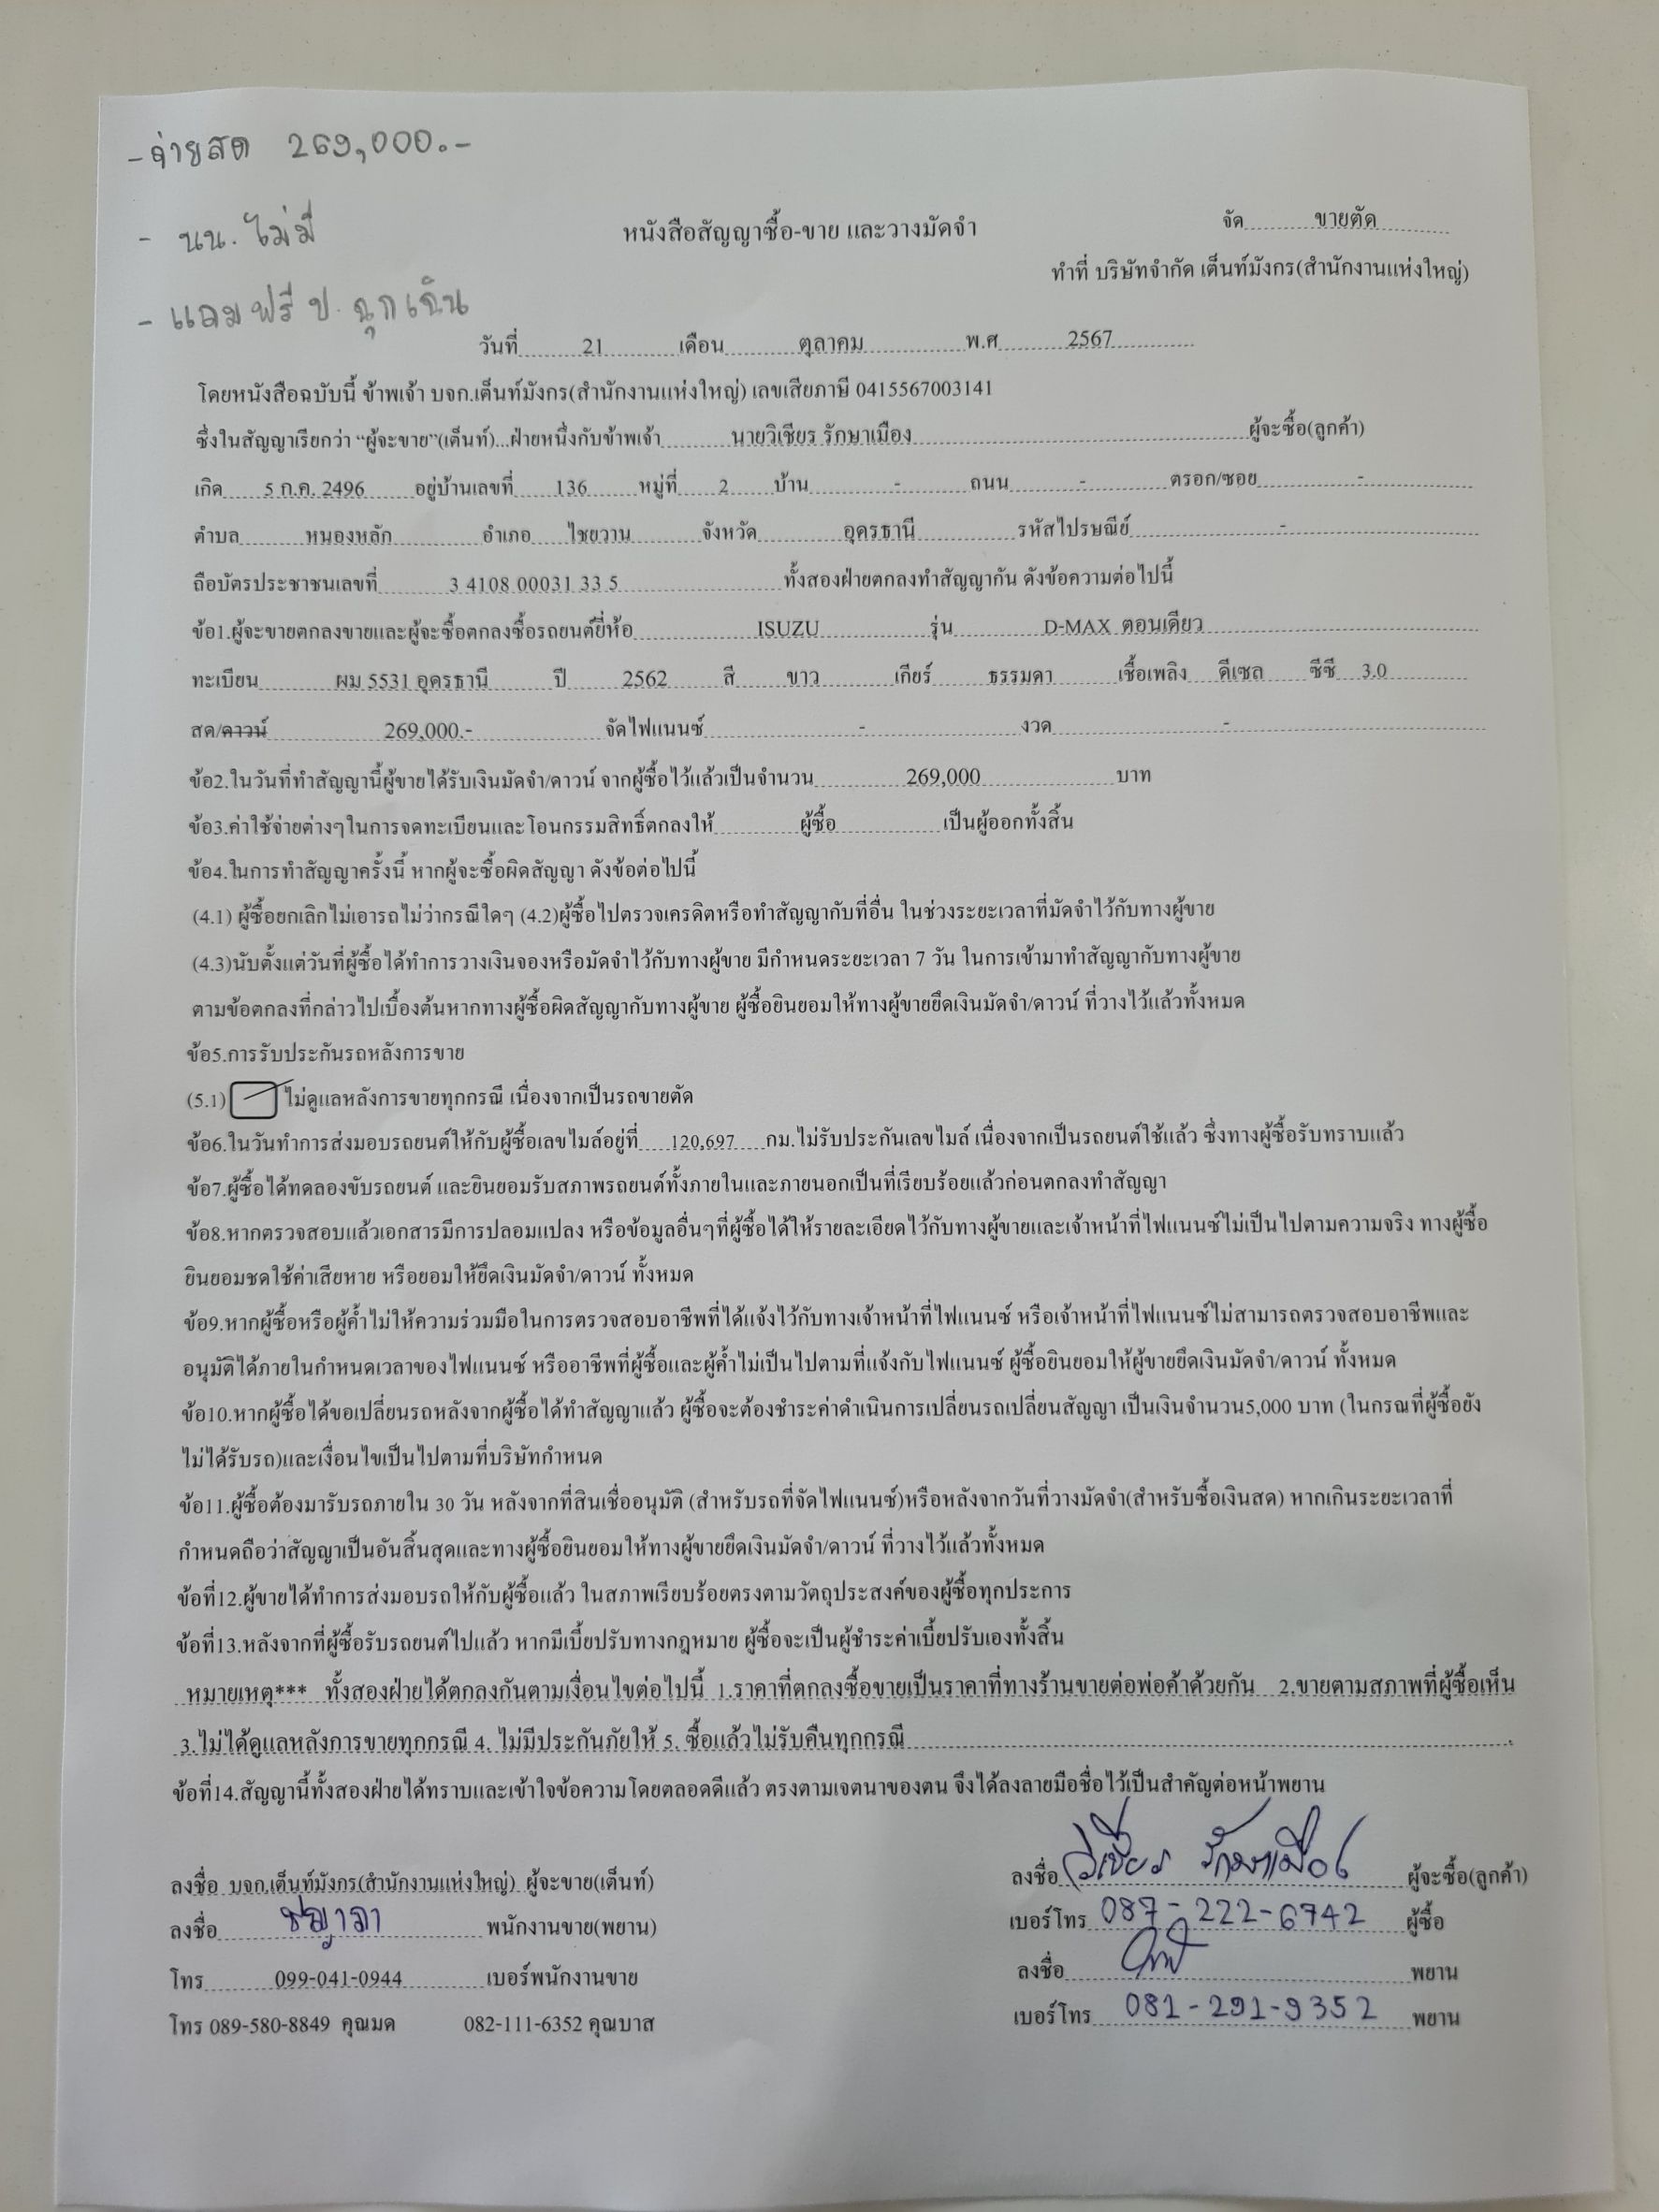 -จ่ายสด 269,000.-
- นน. ไม่มี
- แถมฟรี ป. ฉุกเฉิน
จัด ขายตัด
หนังสือสัญญาซื้อ-ขาย และวางมัดจำ
ทำที่ บริษัทจำกัด เต็นท์มังกร(สำนักงานแห่งใหญ่)
วันที่ 21 เดือน ตุลาคม พ.ศ 2567
โดยหนังสือฉบับนี้ ข้าพเจ้า บจก.เต็นท์มังกร(สำนักงานแห่งใหญ่) เลขเสียภาษี 0415567003141
ซึ่งในสัญญาเรียกว่า “ผู้จะขาย”(เต็นท์)...ฝ่ายหนึ่งกับข้าพเจ้า นายวิเชียร รักษาเมือง ผู้จะซื้อ(ลูกค้า)
เกิด 5 ก.ค. 2496 อยู่บ้านเลขที่ 136 หมู่ที่ 2 บ้าน - ถนน - ตรอก/ซอย -
ตำบล หนองหลัก อำเภอ ไชยวาน จังหวัด อุดรธานี รหัสไปรษณีย์ -
ถือบัตรประชาชนเลขที่ 3 4108 00031 33 5 ทั้งสองฝ่ายตกลงทำสัญญากัน ดังข้อความต่อไปนี้
ข้อ1.ผู้จะขายตกลงขายและผู้จะซื้อตกลงซื้อรถยนต์ยี่ห้อ ISUZU รุ่น D-MAX ตอนเดียว
ทะเบียน ผม 5531 อุดรธานี ปี 2562 สี ขาว เกียร์ ธรรมดา เชื้อเพลิง ดีเซล ซีซี 3.0
สด/ดาวน์ 269,000.- จัดไฟแนนซ์ - งวด -
ข้อ2.ในวันที่ทำสัญญานี้ผู้ขายได้รับเงินมัดจำ/ดาวน์ จากผู้ซื้อไว้แล้วเป็นจำนวน 269,000 บาท
ข้อ3.ค่าใช้จ่ายต่างๆในการจดทะเบียนและโอนกรรมสิทธิ์ตกลงให้ ผู้ซื้อ เป็นผู้ออกทั้งสิ้น
ข้อ4.ในการทำสัญญาครั้งนี้ หากผู้จะซื้อผิดสัญญา ดังข้อต่อไปนี้
(4.1) ผู้ซื้อยกเลิกไม่เอารถไม่ว่ากรณีใดๆ (4.2)ผู้ซื้อไปตรวจเครดิตหรือทำสัญญากับที่อื่น ในช่วงระยะเวลาที่มัดจำไว้กับทางผู้ขาย
(4.3)นับตั้งแต่วันที่ผู้ซื้อได้ทำการวางเงินจองหรือมัดจำไว้กับทางผู้ขาย มีกำหนดระยะเวลา 7 วัน ในการเข้ามาทำสัญญากับทางผู้ขาย
ตามข้อตกลงที่กล่าวไปเบื้องต้นหากทางผู้ซื้อผิดสัญญากับทางผู้ขาย ผู้ซื้อยินยอมให้ทางผู้ขายยึดเงินมัดจำ/ดาวน์ ที่วางไว้แล้วทั้งหมด
ข้อ5.การรับประกันรถหลังการขาย
(5.1) ไม่ดูแลหลังการขายทุกกรณี เนื่องจากเป็นรถขายตัด
ข้อ6.ในวันทำการส่งมอบรถยนต์ให้กับผู้ซื้อเลขไมล์อยู่ที่ 120,697 กม.ไม่รับประกันเลขไมล์ เนื่องจากเป็นรถยนต์ใช้แล้ว ซึ่งทางผู้ซื้อรับทราบแล้ว
ข้อ7.ผู้ซื้อได้ทดลองขับรถยนต์ และยินยอมรับสภาพรถยนต์ทั้งภายในและภายนอกเป็นที่เรียบร้อยแล้วก่อนตกลงทำสัญญา
ข้อ8.หากตรวจสอบแล้วเอกสารมีการปลอมแปลง หรือข้อมูลอื่นๆที่ผู้ซื้อได้ให้รายละเอียดไว้กับทางผู้ขายและเจ้าหน้าที่ไฟแนนซ์ไม่เป็นไปตามความจริง ทางผู้ซื้อ
ยินยอมชดใช้ค่าเสียหาย หรือยอมให้ยึดเงินมัดจำ/ดาวน์ ทั้งหมด
ข้อ9.หากผู้ซื้อหรือผู้ค้ำไม่ให้ความร่วมมือในการตรวจสอบอาชีพที่ได้แจ้งไว้กับทางเจ้าหน้าที่ไฟแนนซ์ หรือเจ้าหน้าที่ไฟแนนซ์ไม่สามารถตรวจสอบอาชีพและ
อนุมัติได้ภายในกำหนดเวลาของไฟแนนซ์ หรืออาชีพที่ผู้ซื้อและผู้ค้ำไม่เป็นไปตามที่แจ้งกับไฟแนนซ์ ผู้ซื้อยินยอมให้ผู้ขายยึดเงินมัดจำ/ดาวน์ ทั้งหมด
ข้อ10.หากผู้ซื้อได้ขอเปลี่ยนรถหลังจากผู้ซื้อได้ทำสัญญาแล้ว ผู้ซื้อจะต้องชำระค่าดำเนินการเปลี่ยนรถเปลี่ยนสัญญา เป็นเงินจำนวน5,000 บาท (ในกรณที่ผู้ซื้อยัง
ไม่ได้รับรถ)และเงื่อนไขเป็นไปตามที่บริษัทกำหนด
ข้อ11.ผู้ซื้อต้องมารับรถภายใน 30 วัน หลังจากที่สินเชื่ออนุมัติ (สำหรับรถที่จัดไฟแนนซ์)หรือหลังจากวันที่วางมัดจำ(สำหรับซื้อเงินสด) หากเกินระยะเวลาที่
กำหนดถือว่าสัญญาเป็นอันสิ้นสุดและทางผู้ซื้อยินยอมให้ทางผู้ขายยึดเงินมัดจำ/ดาวน์ ที่วางไว้แล้วทั้งหมด
ข้อที่12.ผู้ขายได้ทำการส่งมอบรถให้กับผู้ซื้อแล้ว ในสภาพเรียบร้อยตรงตามวัตถุประสงค์ของผู้ซื้อทุกประการ
ข้อที่13.หลังจากที่ผู้ซื้อรับรถยนต์ไปแล้ว หากมีเบี้ยปรับทางกฎหมาย ผู้ซื้อจะเป็นผู้ชำระค่าเบี้ยปรับเองทั้งสิ้น
หมายเหตุ*** ทั้งสองฝ่ายได้ตกลงกันตามเงื่อนไขต่อไปนี้ 1.ราคาที่ตกลงซื้อขายเป็นราคาที่ทางร้านขายต่อพ่อค้าด้วยกัน 2.ขายตามสภาพที่ผู้ซื้อเห็น
3.ไม่ได้ดูแลหลังการขายทุกกรณี 4. ไม่มีประกันภัยให้ 5. ซื้อแล้วไม่รับคืนทุกกรณี
ข้อที่14.สัญญานี้ทั้งสองฝ่ายได้ทราบและเข้าใจข้อความโดยตลอดดีแล้ว ตรงตามเจตนาของตน จึงได้ลงลายมือชื่อไว้เป็นสำคัญต่อหน้าพยาน
ลงชื่อ บจก.เต็นท์มังกร(สำนักงานแห่งใหญ่) ผู้จะขาย(เต็นท์)
ลงชื่อ วิเชียร รักษาเมือง ผู้จะซื้อ(ลูกค้า)
ลงชื่อ ชญาภา พนักงานขาย(พยาน)
เบอร์โทร 087-222-6742 ผู้ซื้อ
โทร 099-041-0944 เบอร์พนักงานขาย
ลงชื่อ พยาน
โทร 089-580-8849 คุณมด 082-111-6352 คุณบาส
เบอร์โทร 081-291-9352 พยาน